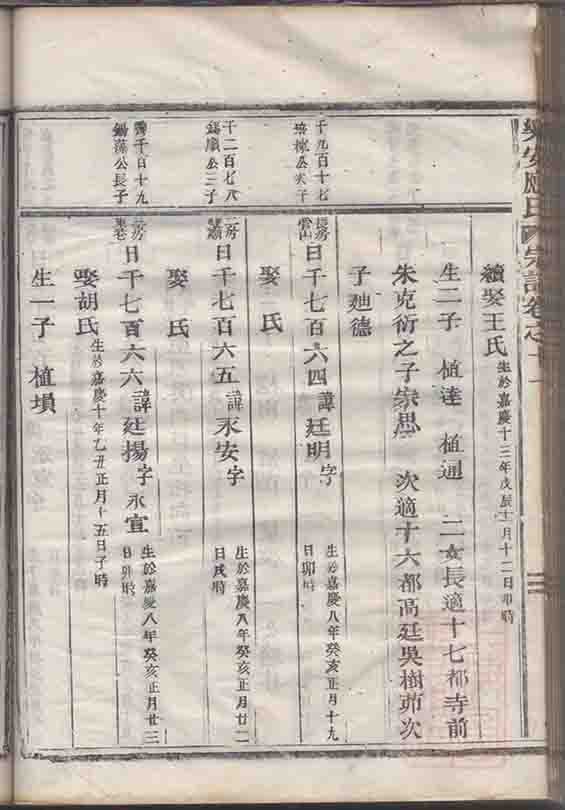 樂安應氏宗譜卷之
續娶王氏 生於嘉慶十三年戊辰十二月十二日卯時
生二子 植達 植通 二女長適十七都寺前
朱克衍之子崇思 次適十六都高廷吳樹茆次
子廸德
千九百十七
長子
曰千七百六四諱廷明字 生於嘉慶八年癸亥正月十九
日卯時
娶 氏
千二百七八
錫 公三子
二房
曰千七百六五諱永安字 生於嘉慶八年癸亥正月廿二
日戌時
娶 氏
千百十九
錫 公長子
二房
曰千七百六六諱廷揚字永宣 生於嘉慶八年癸亥正月廿三
日卯時
娶胡氏 生於嘉慶十年乙丑正月十五日子時
生一子 植塤